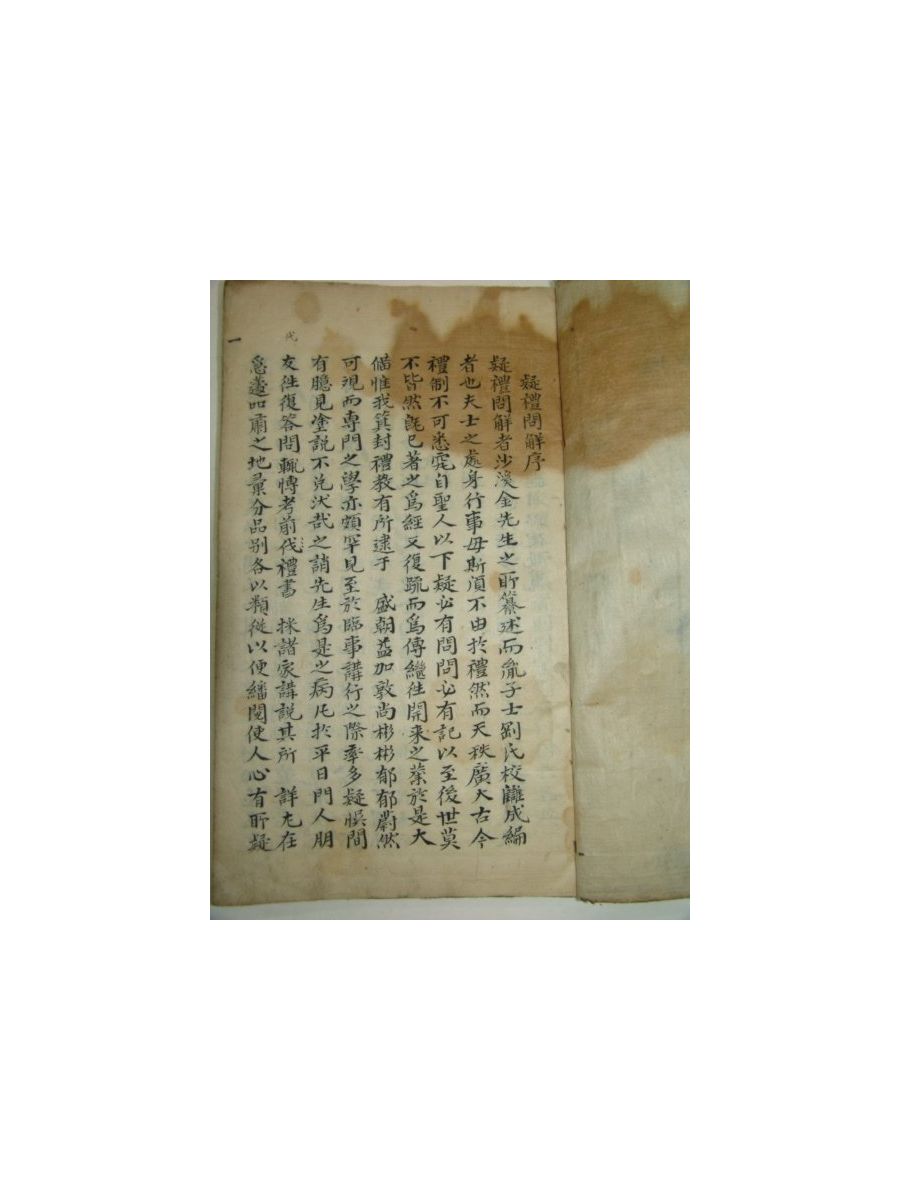 疑禮問解序
疑禮問解者沙溪金先生之所纂述而胤子士剛氏校讎成編
者也夫士之處身行事毋斯須不由於禮然而天秩廣大古今
禮制不可悉究自聖人以下疑必有問問必有記以至後世莫
不皆然旣已著之爲經又復䟽而爲傳繼往開来之業於是大
偹惟我箕封禮教有所逮于 盛朝益加敦尚彬彬郁郁蔚然
可observed而専門之學亦頗罕見至於臨事講行之際率多疑悞間
有臆見塗説不免汰哉之誚先生爲是之病凡於平日門人朋
友往復答問輒愽考前代禮書 採諸家講説其所 詳尤在
急遽 之地彙分品别各以類從以便繙閱使人心有所疑
代
一